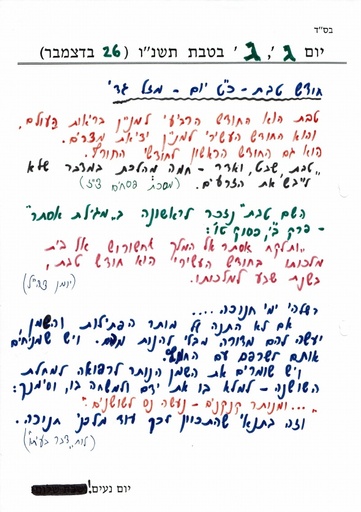 בס״ד
יום ג׳, ג׳ בטבת תשנ״ו (26 בדצמבר)
חודש טבת - כ״ט יום - מזל גדי
טבת הוא החודש הרביעי למנין בריאת העולם,
והוא החודש העשירי למנין יציאת מצרים.
הוא גם החודש הראשון לחודשי החורף.
״טבת, שבט, ואדר - חמה מהלכת במדבר שלא
לייבש את הזרעים. (מסכת פסחים צ״ד)
השם ״טבת״ נזכר לראשונה ב״מגילת אסתר״
- פרק ב׳, פסוק ט״ז:
״ותלקח אסתר אל המלך אחשורוש אל בית
מלכותו בחודש העשירי הוא חודש טבת,
בשנת שבע למלכותו.
ימי חנוכה....
אם לא התנה על מותר הפתילות והשמן
יעשה להם מדורה מבלי להנות מהם. ויש שמניחים
אותם לשרפם עם החמץ.
ויש שומרים את השמן הנותר לרפואה למחלת
השושנה - למלא בו את ידם ולמשחה בו, וסימנך:
״...ומנותר קנקנים - נעשה נס לשושנים.״
וזה בתנאי שהתכוין לכך עוד מלפני חנוכה.
יום נעים!